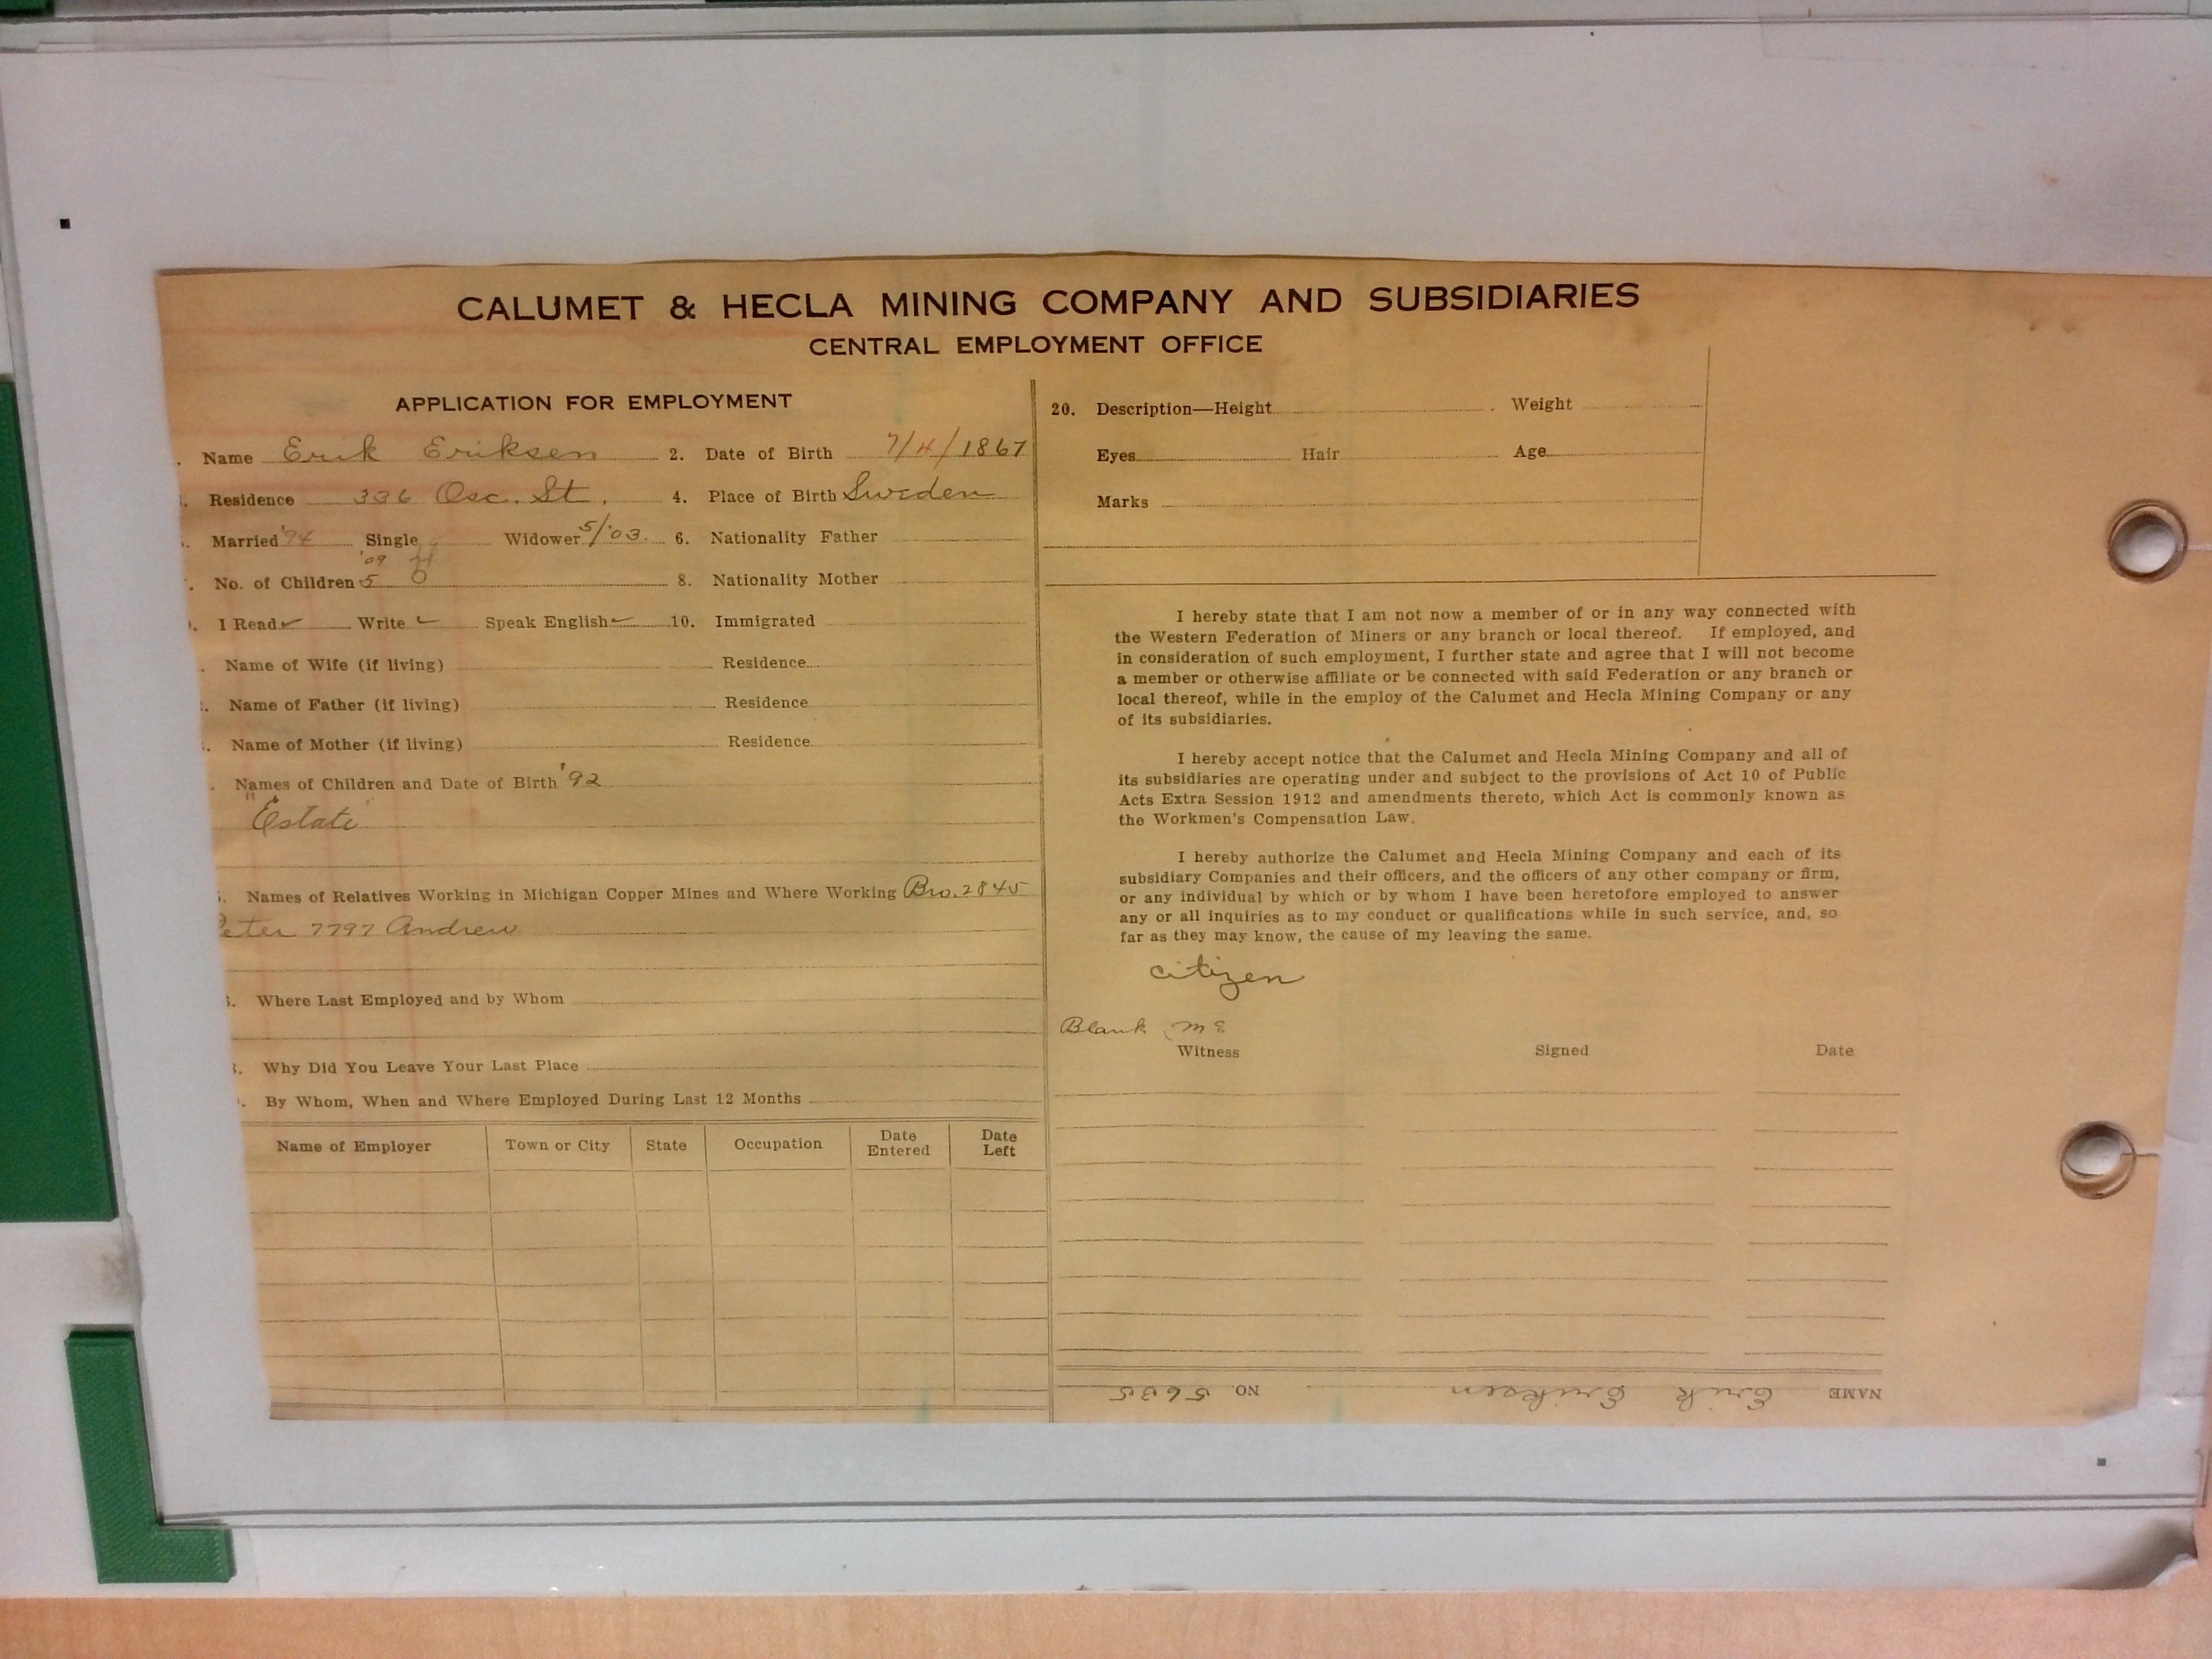 CALUMET & HECLA MINING COMPANY AND SUBSIDIARIES
CENTRAL EMPLOYMENT OFFICE
APPLICATION FOR EMPLOYMENT
. Name Erik Eriksen 2. Date of Birth 7/4/1867
. Residence 336 Osc. St. 4. Place of Birth Sweden
. Married '94 Single Widower 5/'03. 6. Nationality Father
'09
. No. of Children 5 8. Nationality Mother
. I Read ✓ Write ✓ Speak English ✓ 10. Immigrated
. Name of Wife (if living) Residence
. Name of Father (if living) Residence
. Name of Mother (if living) Residence
. Names of Children and Date of Birth '92
"Estate"
. Names of Relatives Working in Michigan Copper Mines and Where Working Bro. 2845
Peter 7797 Andrew
. Where Last Employed and by Whom
. Why Did You Leave Your Last Place
. By Whom, When and Where Employed During Last 12 Months
Name of Employer Town or City State Occupation Date Entered Date Left
20. Description—Height Weight
Eyes Hair Age
Marks
I hereby state that I am not now a member of or in any way connected with
the Western Federation of Miners or any branch or local thereof. If employed, and
in consideration of such employment, I further state and agree that I will not become
a member or otherwise affiliate or be connected with said Federation or any branch or
local thereof, while in the employ of the Calumet and Hecla Mining Company or any
of its subsidiaries.
I hereby accept notice that the Calumet and Hecla Mining Company and all of
its subsidiaries are operating under and subject to the provisions of Act 10 of Public
Acts Extra Session 1912 and amendments thereto, which Act is commonly known as
the Workmen's Compensation Law.
I hereby authorize the Calumet and Hecla Mining Company and each of its
subsidiary Companies and their officers, and the officers of any other company or firm,
or any individual by which or by whom I have been heretofore employed to answer
any or all inquiries as to my conduct or qualifications while in such service, and, so
far as they may know, the cause of my leaving the same.
citizen
Blank
Witness Signed Date
NAME Erik Eriksen NO. 5635